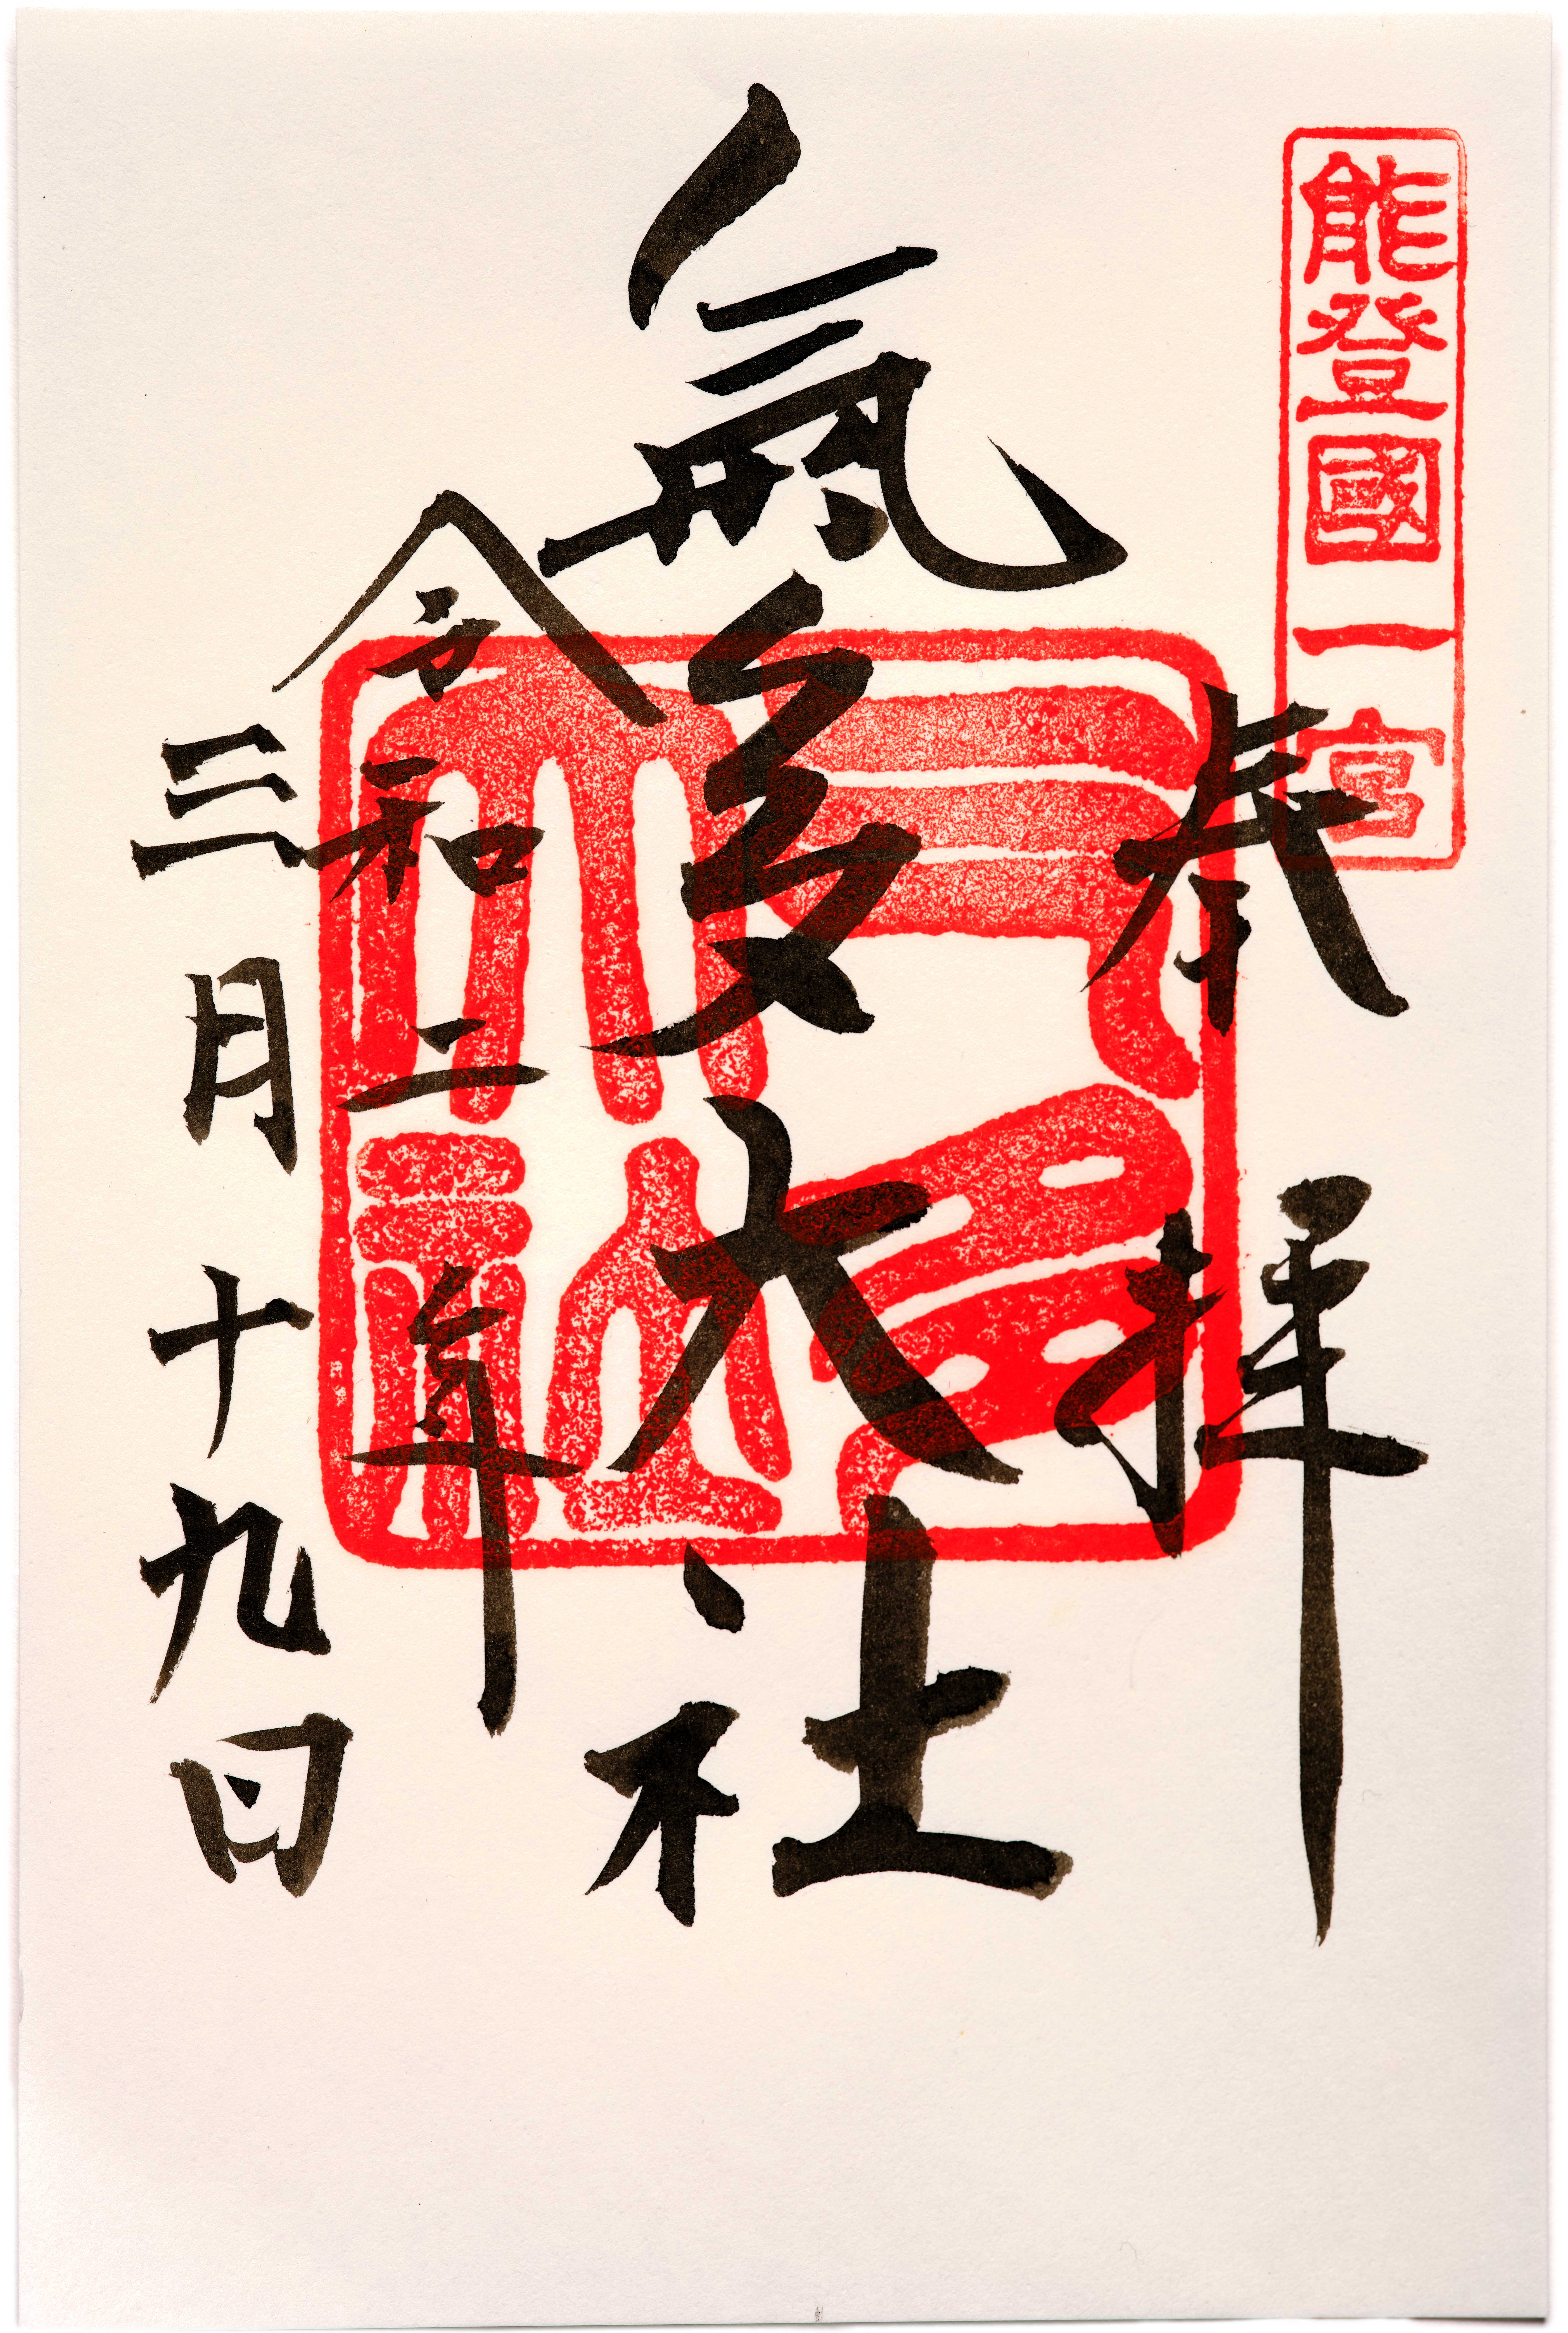 能登國一宮
奉拝
氣多大社
令和二年
三月十九日